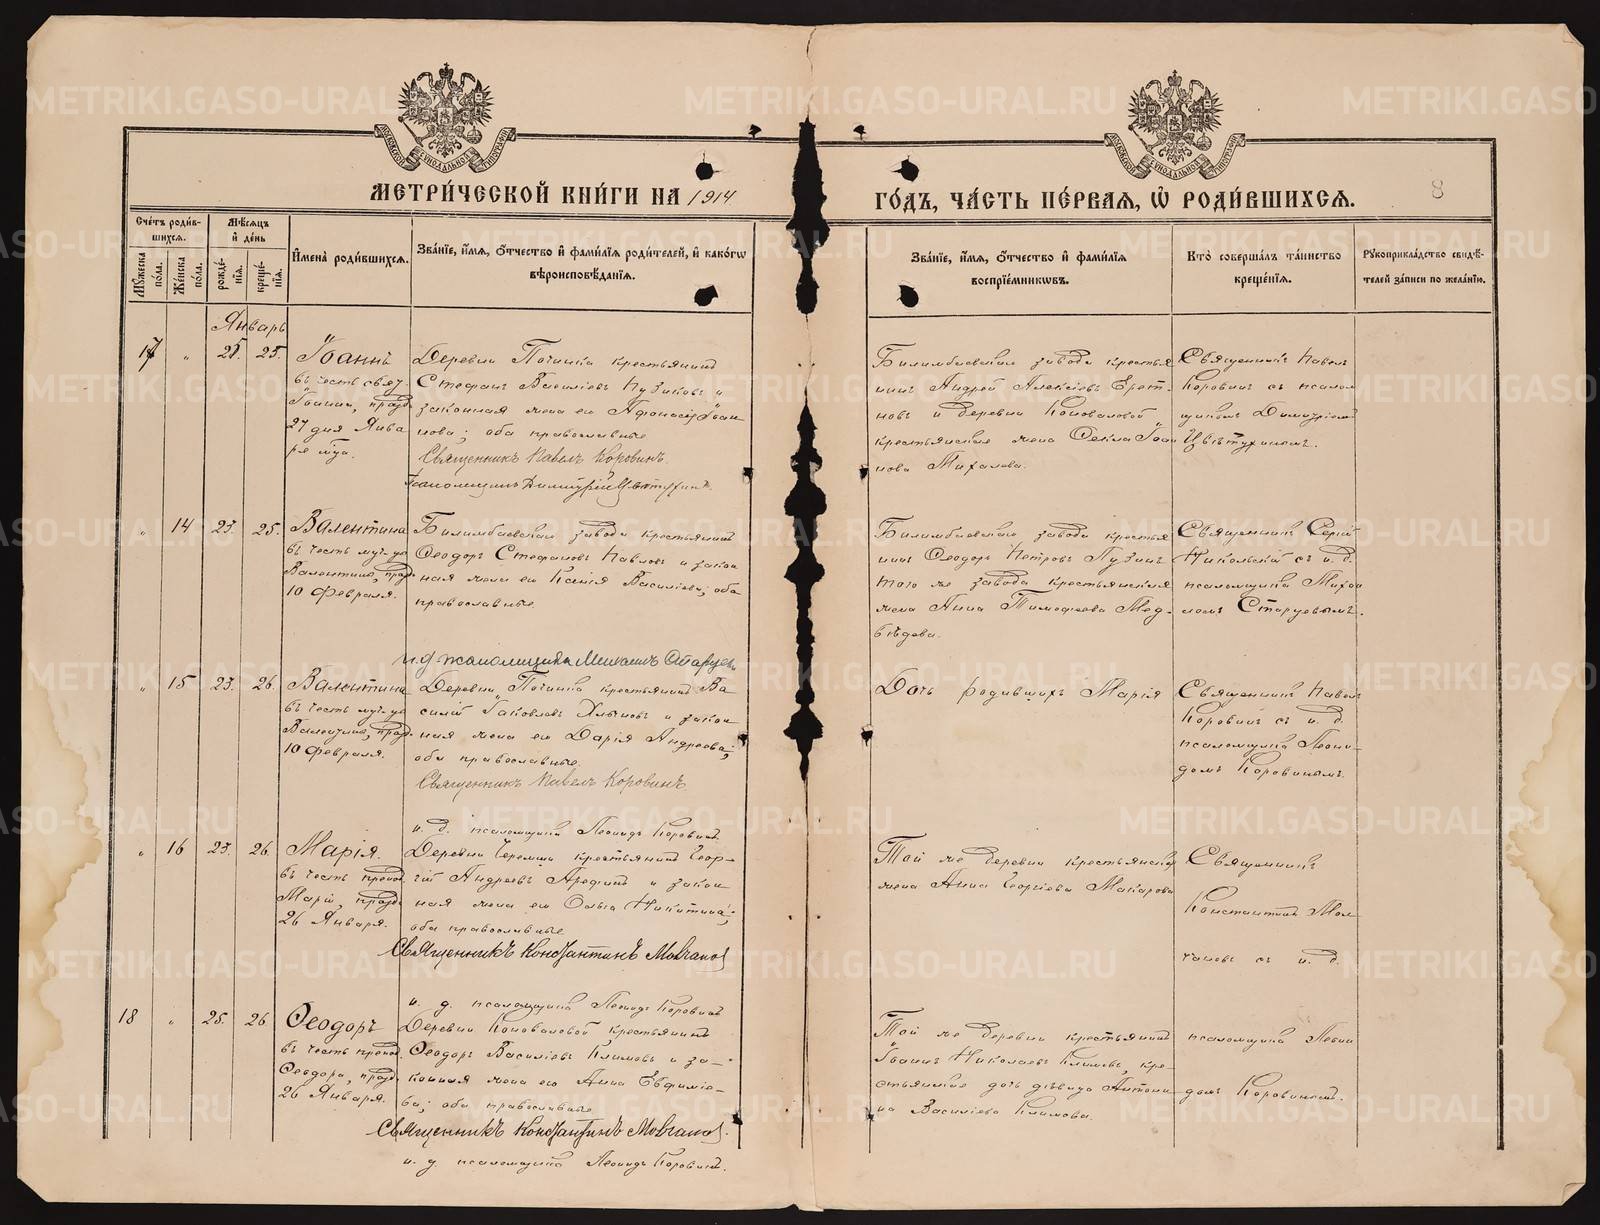 МОСКОВСКОЙ СѴНОДАЛЬНОЙ ТИПОГРАФІИ
МОСКОВСКОЙ СѴНОДАЛЬНОЙ ТИПОГРАФІИ
МЕТРИ́ЧЕСКОЙ КНИ́ГИ НА 1914
ГО́ДЪ, ЧА́СТЬ ПЕ́РВАЯ, Ѡ РОДИ́ВШИХСЯ.
8
Сче́тъ роди́в-
шихся.
Мѣ́сяцъ
и де́нь
Мꙋ́жеска по́ла.
Же́нска по́ла.
рожде́-
нїя.
креще́-
нїя.
Имена̀ роди́вшихся.
Зва́нїе, и́мя, ѻ́тчество и фами́лїя роди́телей, и како́гѡ
вѣроисповѣ́данїя.
Зва́нїе, и́мя, ѻ́тчество и фами́лїя
воспрїе́мникѡвъ.
Кто̀ соверша́лъ та́инство
креще́нїя.
Рꙋкоприкла́дство свидѣ́-
телей за́писи по жела́нїю.
Январь
17 " 21. 25.
Іоаннъ
въ честь свят.
Іоанна, празд.
27 дня Янва
ря м-ца.
Деревни Починка крестьянинъ
Стефанъ Василіевъ Пузиковъ и
законная жена его Афонасія Іоан
нова; оба православные
Священникъ Павелъ Коровинъ.
Псаломщикъ Димитрій Цвѣтухинъ.
Билимбаевскаго завода крестья
нинъ Андрей Алексіевъ Ерет-
новъ и деревни Коноваловой
крестьянская жена Фекла Іоан
нова Михалева.
Священникъ Павелъ
Коровинъ съ псалом
щикомъ Димитріемъ
Цвѣтухинымъ.
" 14 23 25.
Валентина
въ честь муч-цы
Валентины, празд.
10 Февраля.
Билимбаевскаго завода крестьянинъ
Ѳеодоръ Стефановъ Павловъ и закон
ная жена его Ксенія Василіева; оба
православные.
и. д. псаломщика Михаилъ Старцевъ
Билимбаевскаго завода крестья
нинъ Ѳеодоръ Петровъ Пузинъ
того же завода крестьянская
жена Анна Тимофеева Мед-
вѣдева.
Священникъ Сергій
Никольскій съ и. д.
псаломщика Михаи
ломъ Старцевымъ.
" 15 23. 26.
Валентина
въ честь муч-цы
Валентины, празд.
10 Февраля.
Деревни Починка крестьянинъ Ва
силій Іаковлевъ Хлѣновъ и закон
ная жена его Дарія Андреева;
оба православные.
Священникъ Павелъ Коровинъ.
и. д. псаломщика Леонидъ Коровинъ.
Дочь родившихъ Марія
Священникъ Павелъ
Коровинъ съ и. д.
псаломщика Леони-
домъ Коровинымъ.
" 16 23. 26.
Марія.
въ честь препод.
Маріи, празд.
26 Января.
Деревни Черемши крестьянинъ Геор-
гій Андреевъ Арефинъ и закон
ная жена его Ольга Никитина;
оба православные
Священникъ Константинъ Молчановъ
и. д. псаломщика Леонидъ Коровинъ
Той же деревни крестьянская
жена Анна Георгіева Макарова
Священникъ
Константинъ Мол
чановъ съ и. д.
псаломщика Леони
домъ Коровинымъ.
18 " 25. 26
Ѳеодоръ
въ честь препод.
Ѳеодора, празд.
26 Января.
Деревни Коноваловой крестьянинъ
Ѳеодоръ Василіевъ Климовъ и за-
конная жена его Анна Евфиміе-
ва; оба православные
Священникъ Константинъ Молчановъ.
и. д. псаломщика Леонидъ Коровинъ.
Той же деревни крестьянинъ
Іоаннъ Николаевъ Климовъ, кре-
стьянская дочь дѣвица Антони
на Василіева Климова.
METRIKI.GASO-URAL.RU